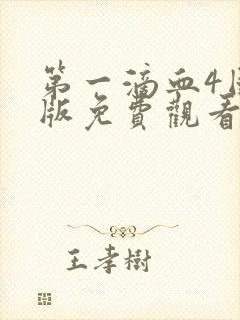 第一滴血4
版免費觀看
王孝樹